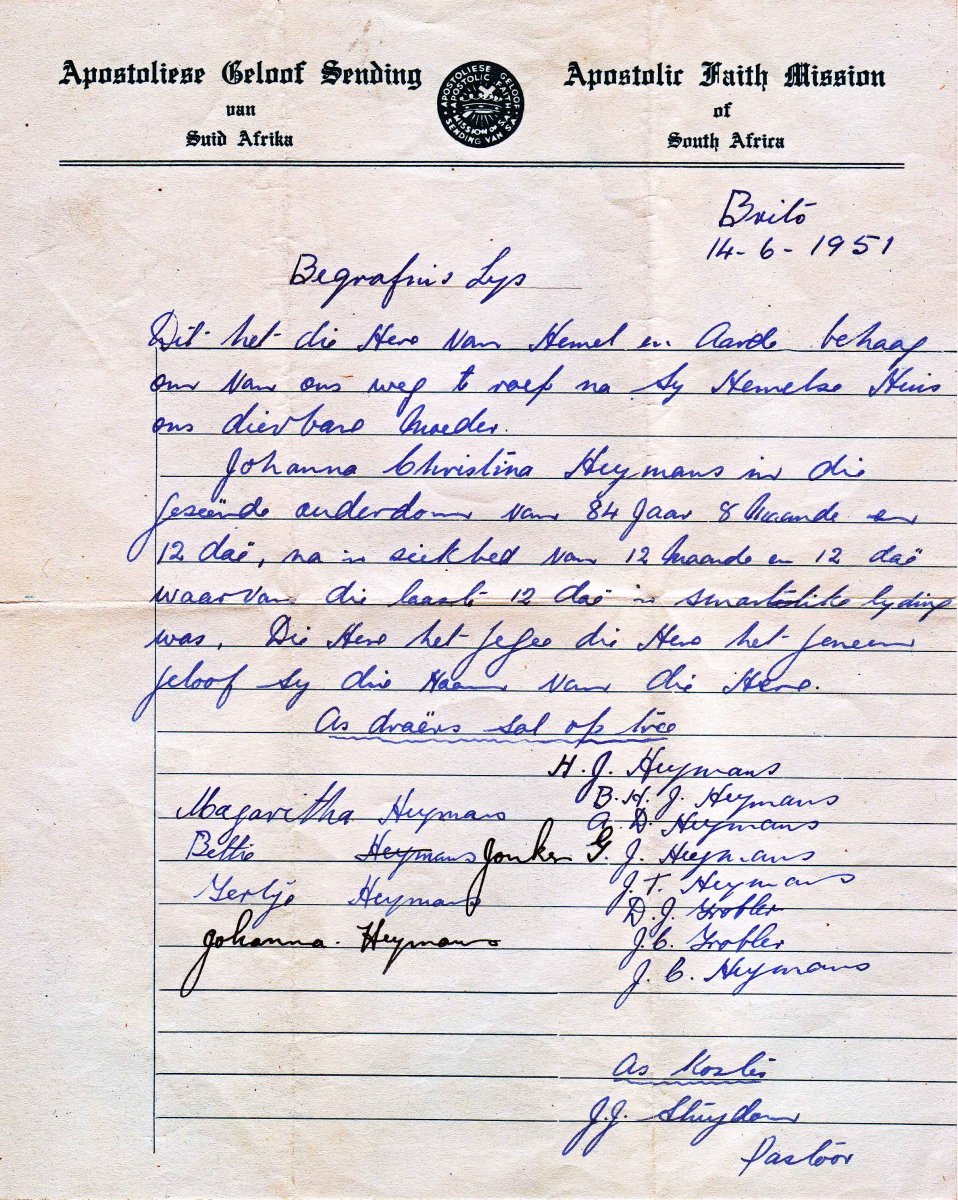 Apostoliese Geloof Sending
van
Suid Afrika
APOSTOLIESE GELOOF
SENDING VAN S.A.
APOSTOLIC FAITH
MISSION OF S.A.
Apostolic Faith Mission
of
South Africa
Brits
14-6-1951
Begrafnis Lys
Dit het die Here van Hemel en Aarde behaag
om van ons weg te roep na Sy Hemelse Huis
ons dierbare Moeder.
Johanna Christina Heymans in die
geseënde ouderdom van 84 Jaar 8 Maande en
12 daë, na 'n siekbed van 12 Maande en 12 daë
waarvan die laaste 12 daë 'n smartlike lyding
was. Die Here het gegee die Here het geneem
geloof sy die Naam van die Here.
As draërs sal op tree
H. J. Heymans
B. H. J. Heymans
Magaritha Heymans
A. D. Heymans
Bettie Heymans Jonker
G. J. Heymans
J. T. Heymans
Gertjo Heymans
D. J. Grobler
J. C. Grobler
Johanna. Heymans
J. C. Heymans
As Kosters
J.J. Strydom
Pastoor